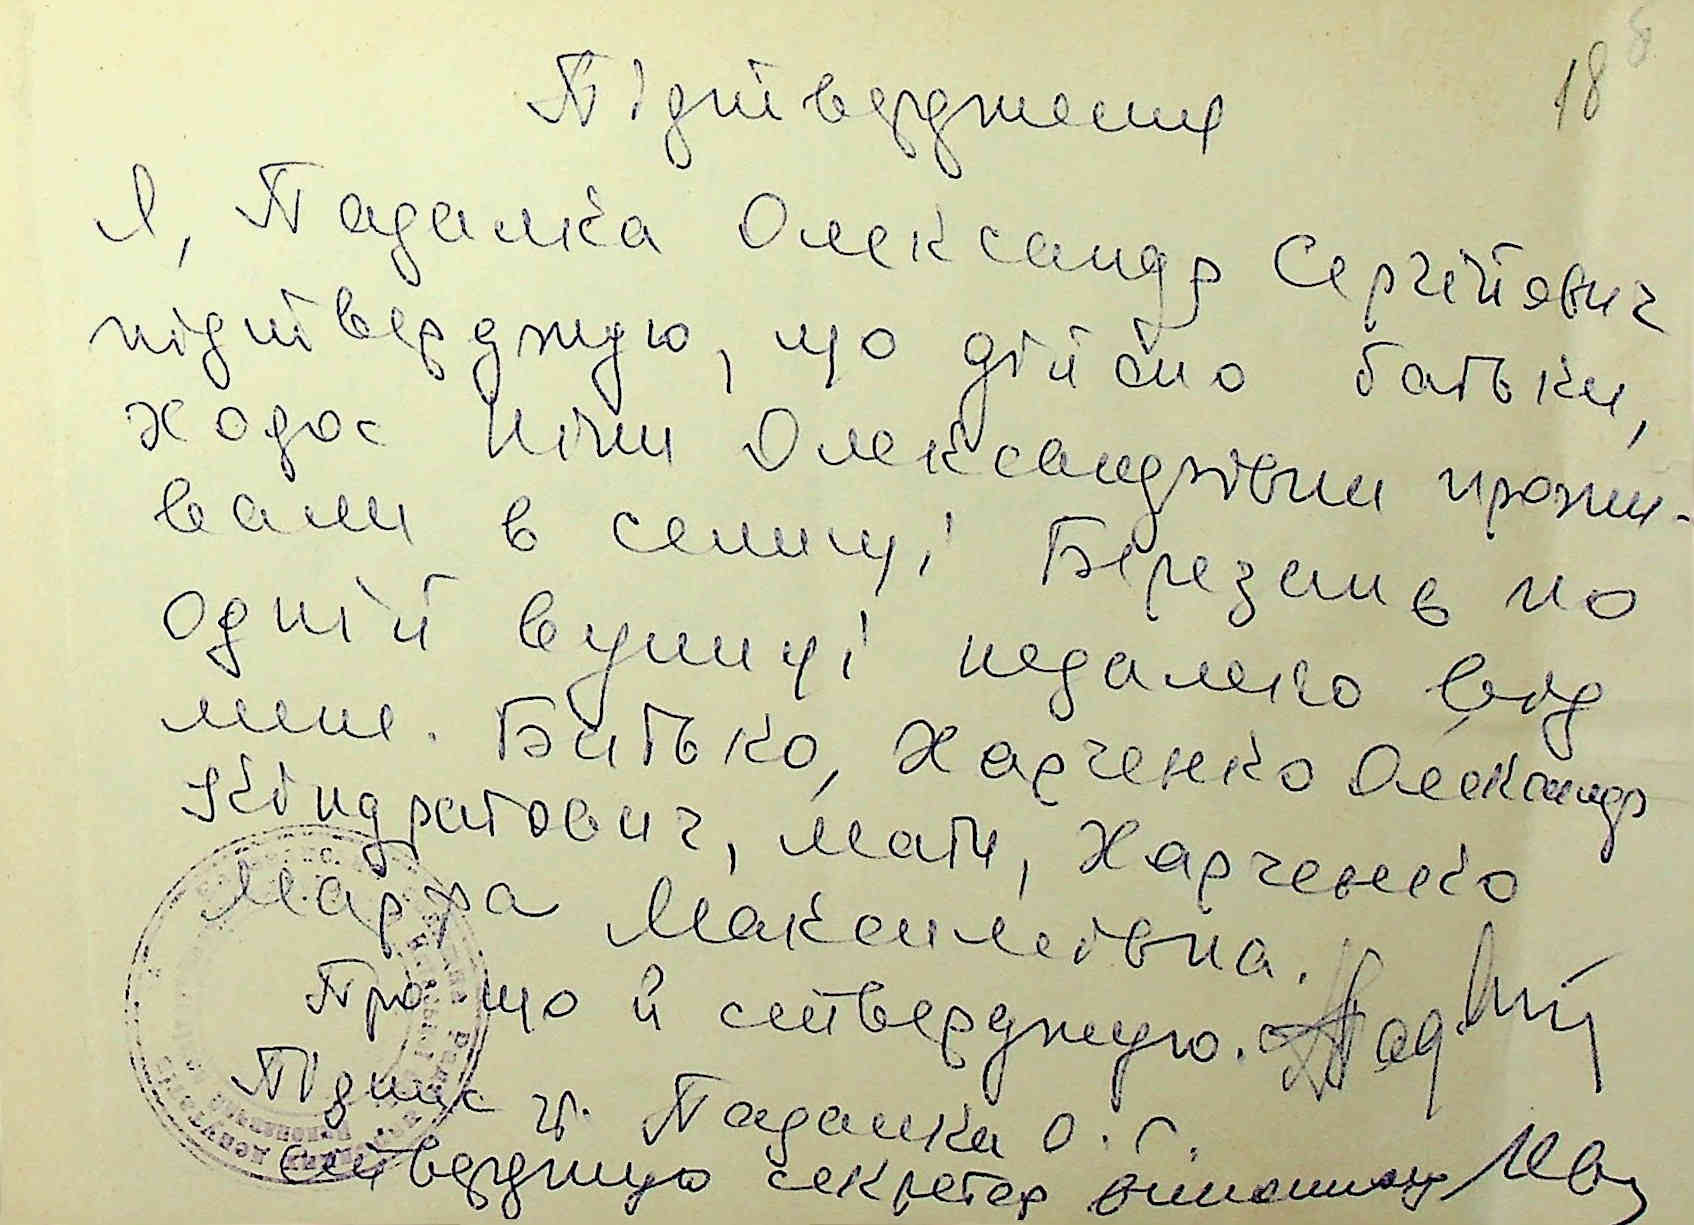 18
Підтвердження
Я, Падалка Олександр Сергійович
підтверджую, що дійсно батьки,
Ходос Ніни Олександрівни прожи-
вали в селищі Березань по
одній вулиці недалеко від
мене. Батько, Харченко Олександр
Кіндратович, мати, Харченко
Марфа Максимівна.
Про що й стверджую.
Підпис гр. Падалки О. С.
стверджую секретар виконкому